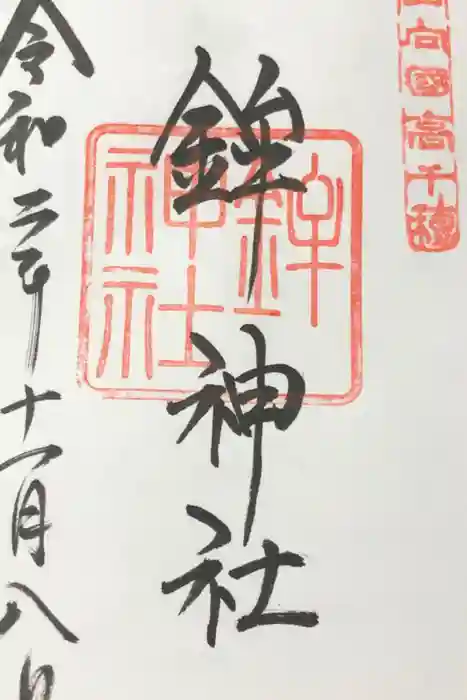 日向國高千穂
鉾神社
鉾神社
令和二年十一月八日